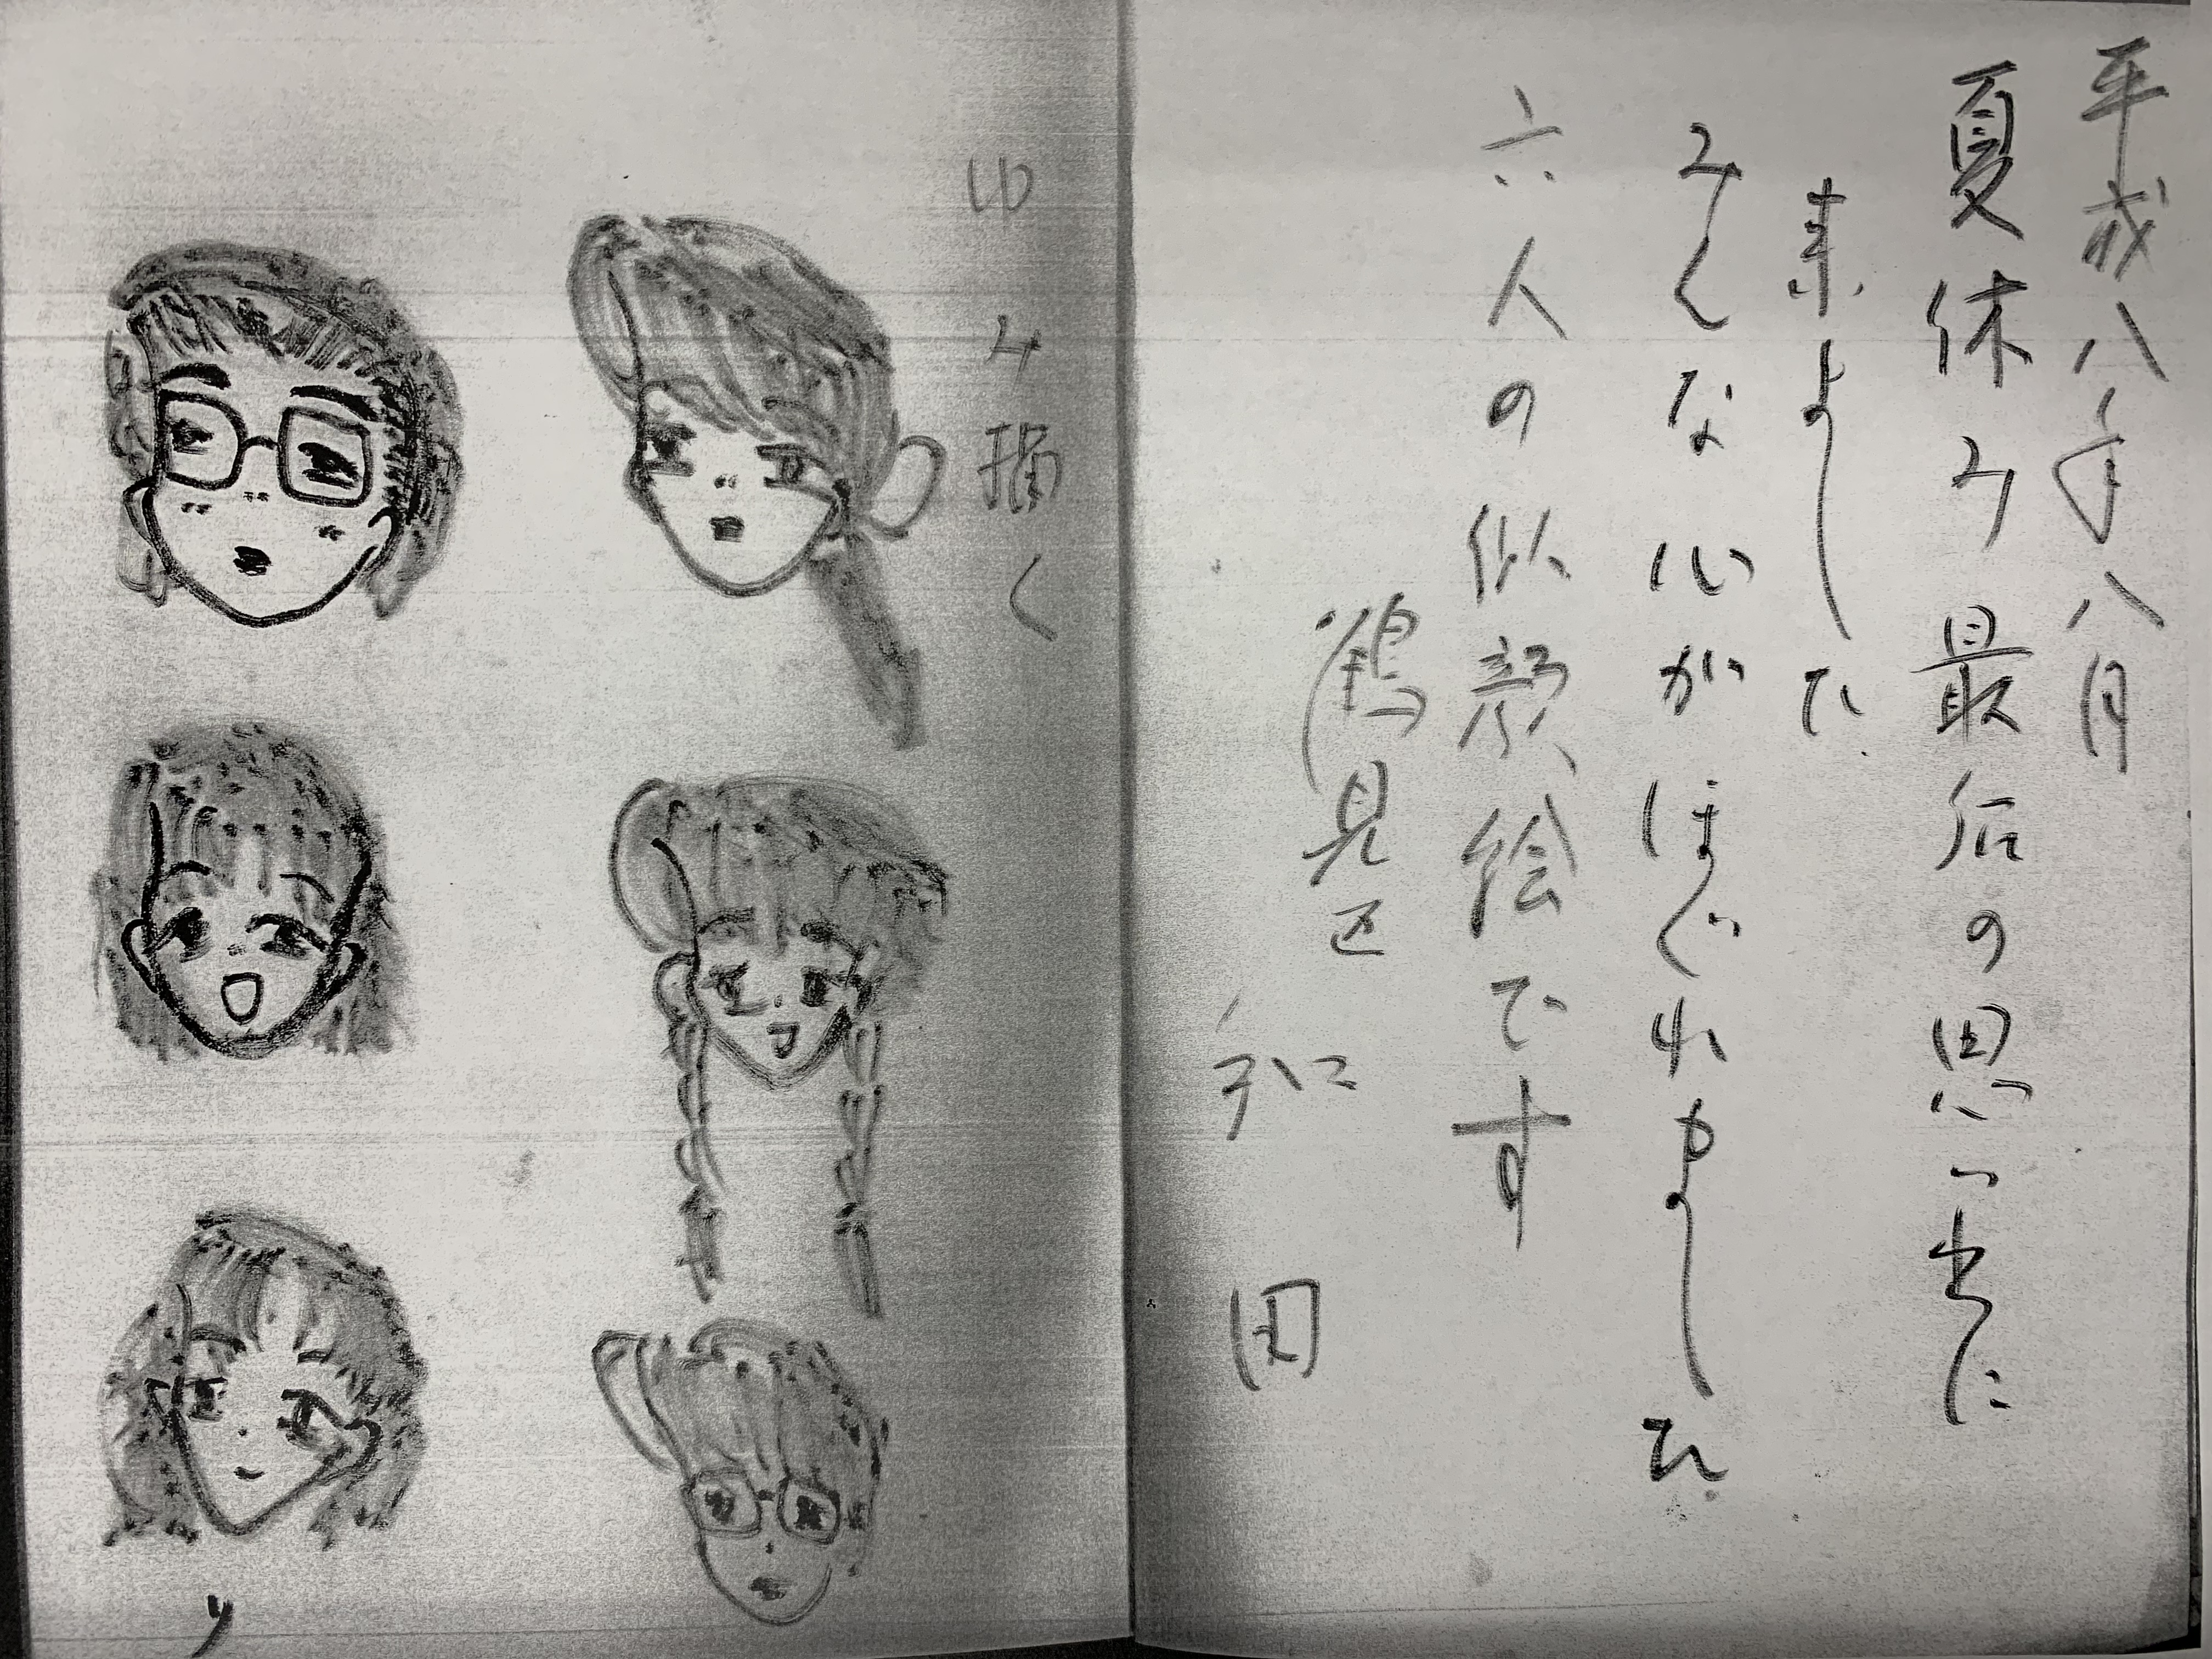 平成八年八月
夏休み最后の思い出に
来ました
みんな心がほぐれました
六人の似顔絵です
鶴見区
和田
ゆみ描く